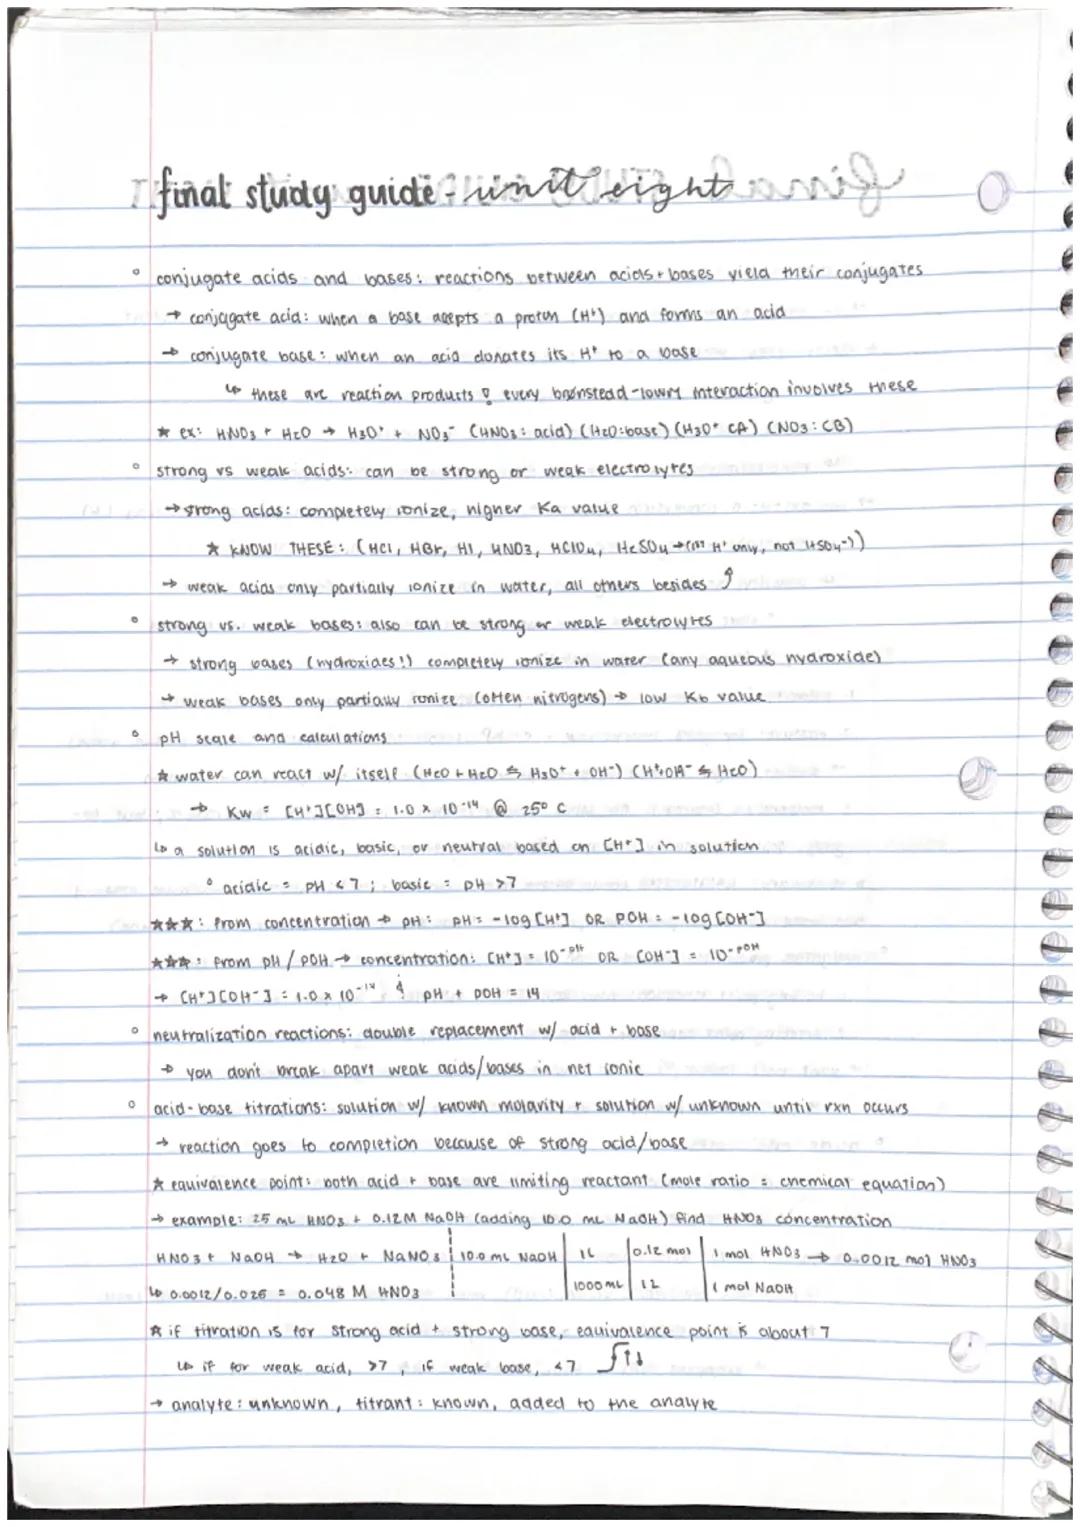 final study guide - unit eight
° conjugate acids and bases: reactions between acids + bases yield their conjugates
→ conjugate acid: when a base accepts a proton (H⁺) and forms an acid
→ conjugate base: when an acid donates its H⁺ to a base
↳ these are reaction products & every brønstead-lowry interaction involves these
★ ex: HNO₃ + H₂O → H₃O⁺ + NO₃⁻ (HNO₃: acid) (H₂O: base) (H₃O⁺ CA) (NO₃: CB)
° strong vs weak acids: can be strong or weak electrolytes
→ strong acids: completely ionize, higher Ka value
★ KNOW THESE: (HCl, HBr, HI, HNO₃, HClO₄, H₂SO₄ → (1st H⁺ only, not HSO₄⁻))
→ weak acids only partially ionize in water, all others besides ⤴
° strong vs. weak bases: also can be strong or weak electrolytes
→ strong bases (hydroxides!) completely ionize in water (any aqueous hydroxide)
→ weak bases only partially ionize (often nitrogens) → low Kb value
° pH scale and calculations
★ water can react w/ itself (H₂O + H₂O ⇆ H₃O⁺ + OH⁻) (H⁺+OH⁻ ⇆ H₂O)
→ Kw = [H⁺][OH] = 1.0 x 10⁻¹⁴ @ 25° C
↳ a solution is acidic, basic, or neutral based on [H⁺] in solution
° acidic = pH < 7; basic = pH >7
★★★: from concentration → pH: pH = -log[H⁺] OR pOH = -log[OH⁻]
★★★: from pH / pOH → concentration: [H⁺] = 10⁻ᵖᴴ OR [OH⁻] = 10⁻ᵖᴼᴴ
→ [H⁺][OH⁻] = 1.0 x 10⁻¹⁴ & pH + pOH = 14
° neutralization reactions: double replacement w/ acid + base
→ you don't break apart weak acids/bases in net ionic
° acid-base titrations: solution w/ known molarity + solution w/ unknown until rxn occurs
→ reaction goes to completion because of strong acid/base
★ equivalence point: both acid + base are limiting reactant (mole ratio = chemical equation)
→ example: 25 mL HNO₃ + 0.12M NaOH (adding 10.0 mL NaOH) find HNO₃ concentration
HNO₃ + NaOH → H₂O + NaNO₃ | 10.0 mL NaOH | 1L | 0.12 mol | 1 mol HNO₃ → 0.0012 mol HNO₃
1000 mL | 1L | 1 mol NaOH
↳ 0.0012/0.025 = 0.048 M HNO₃
★ if titration is for strong acid + strong base, equivalence point is about 7
↳ if for weak acid, >7, if weak base, <7
→ analyte: unknown, titrant: known, added to the analyte